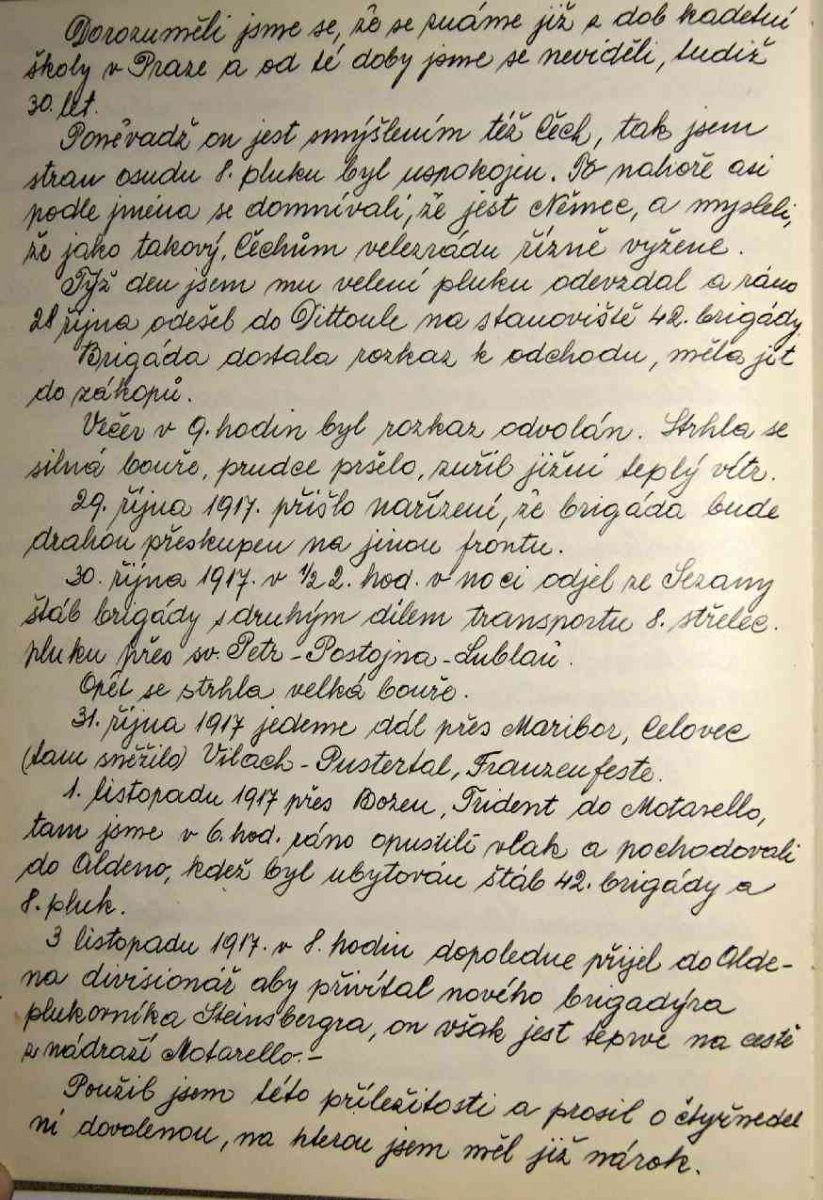 Dorozuměli jsme se, že se známe již z dob kadetní
školy v Praze a od té doby jsme se neviděli, tudiž
30. let.
Poněvadž on jest smýšlením též Čech, tak jsem
stran osudu 8. pluku byl uspokojen. Ti nahoře asi
podle jména se domnívali, že jest Němec, a mysleli,
že jako takový, Čechům velezrádu řízně vyžene.
Týž den jsem mu velení pluku odevzdal a ráno
28 října odešel do Dittoule na stanoviště 42. brigády.
Brigáda dostala rozkaz k odchodu, měla jít
do zákopů.
Večer v 9. hodin byl rozkaz odvolán. Strhla se
silná bouře, prudce pršelo, zuřil jižní teplý vítr.
29. října 1917. přišlo nařízení, že brigáda bude
drahou přeskupen na jinou frontu.
30. října 1917. v 1/2 2. hod. v noci odjel ze Sezany
štáb brigády s druhým dílem transportu 8. střelec.
pluku přes sv. Petr - Postojna - Lublaň.
Opět se strhla velká bouře.
31. října 1917 jedeme dál přes Maribor, Celovec
(tam sněžilo) Vilach - Pustertal, Franzenfeste.
1. listopadu 1917 přes Bozen, Trident do Motarello,
tam jsme v 6. hod. ráno opustili vlak a pochodovali
do Aldeno, kdež byl ubytován štáb 42. brigády a
8. pluk.
3 listopadu 1917. v 8. hodin dopoledne přijel do Alde-
na divisionář aby přivítal nového brigadýra
plukovníka Steinsbergra, on však jest teprve na cestě
z nádraží Motarello.-
Použil jsem této příležitosti a prosil o čtyřnedel
ní dovolenou, na kterou jsem měl již nárok.